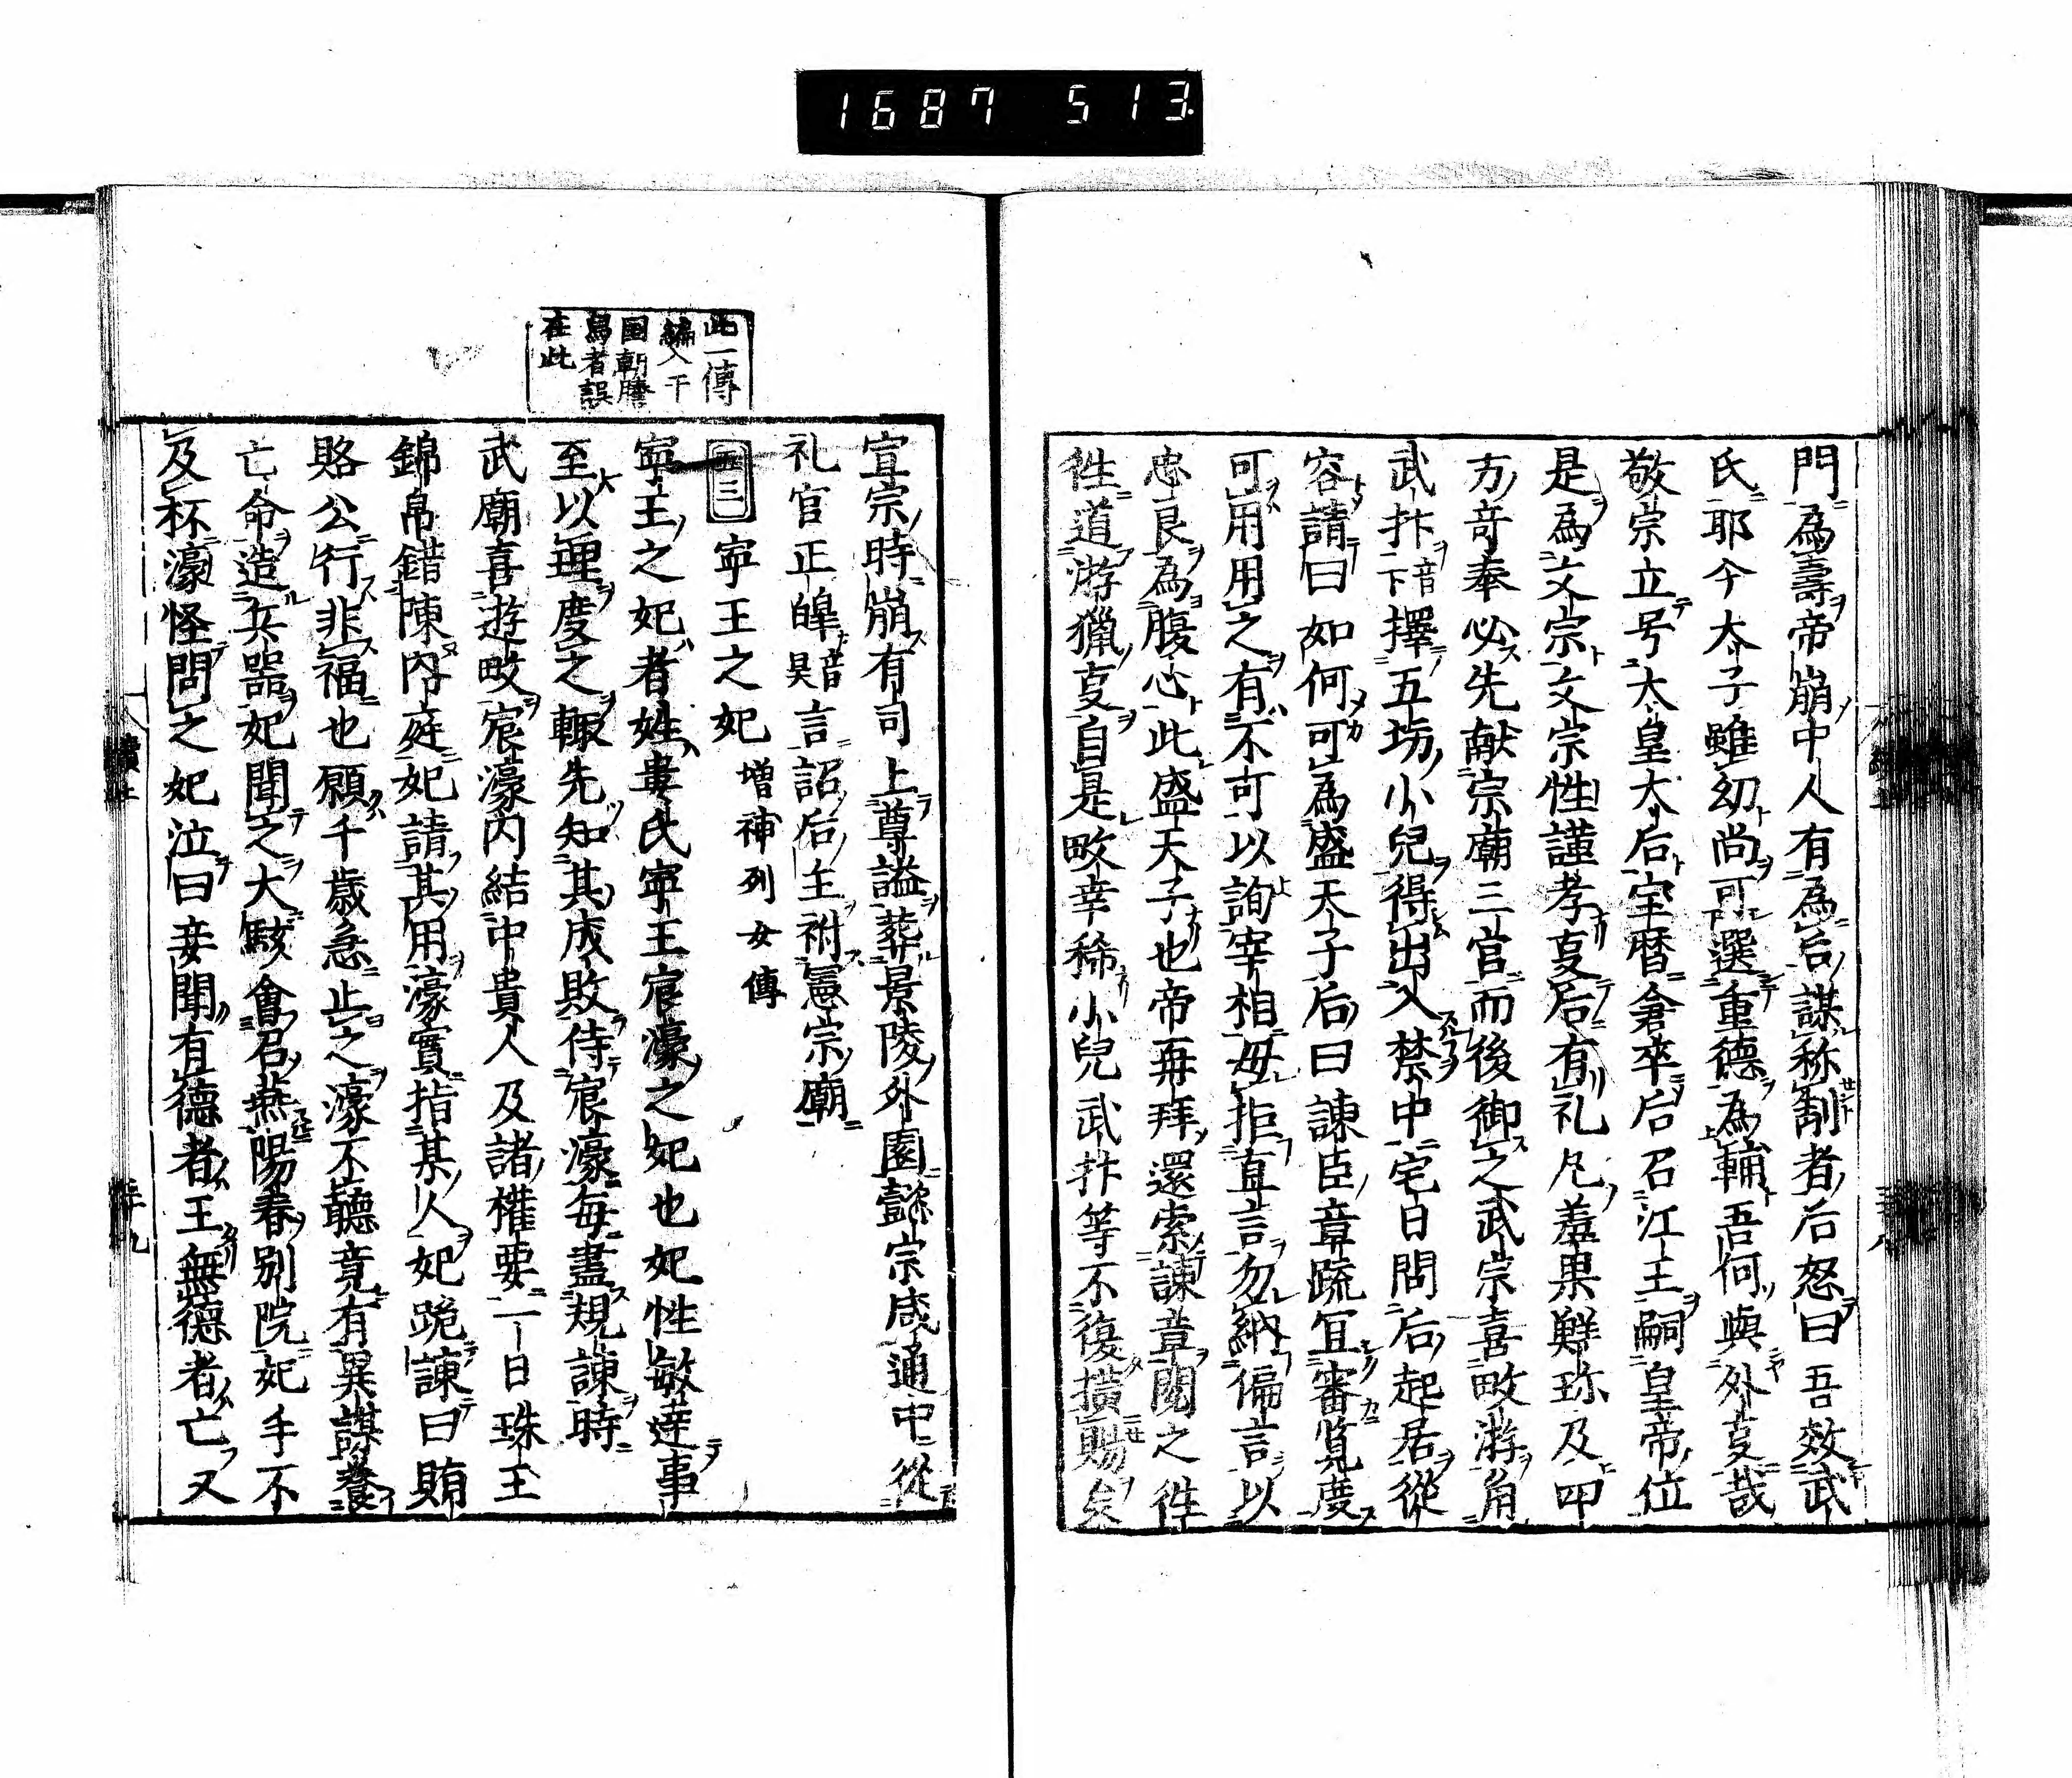 1687 513
門為壽帝崩中人有為后謀称制者后怒曰吾效武
氏耶今太子雖幼尚可選重德為輔吾何與外㕝哉
敬宗立号太皇太后宝暦倉卒后召江王嗣皇帝位
是為文宗文宗性謹孝㕝后有礼凡羞果鮮珎及四
方竒奉必先献宗廟三宮而後御之武宗喜畋游角
武抃音卞擇五坊小兒得出入禁中宅日問后起居從
容請曰如何可為盛天子后曰諫臣章疏冝審覧度
可用用之有不可以詢宰相毋拒直言勿納偏言以
忠良為腹心此盛天子也帝再拜還索諫章閲之徃
徃道游獵㕝自是畋幸稀小兒武抃等不復横賜矣
宣宗時崩有司上尊謚葬景陵外園懿宗咸通中從
礼官正皥音昊言詔后主祔憲宗廟
五三 寕王之妃 増補列女傳
寕王之妃者姓婁氏寕王宸濠之妃也妃性敏達事
至以理度之輙先知其成敗侍宸濠毎盡規諫時
武廟喜遊畋宸濠内結中貴人及諸權要一日珠玉
錦帛錯陳内庭妃請其用濠實指某人妃跪諫曰賄
賂公行非福也願千歳急止之濠不聽竟有異謀養
亡命造兵噐妃聞之大駭會召燕陽春別院妃手不
及杯濠怪問之妃泣曰妾聞有德者王無德者亡又
此一傳
編入干
国朝謄
寫者誤
在此